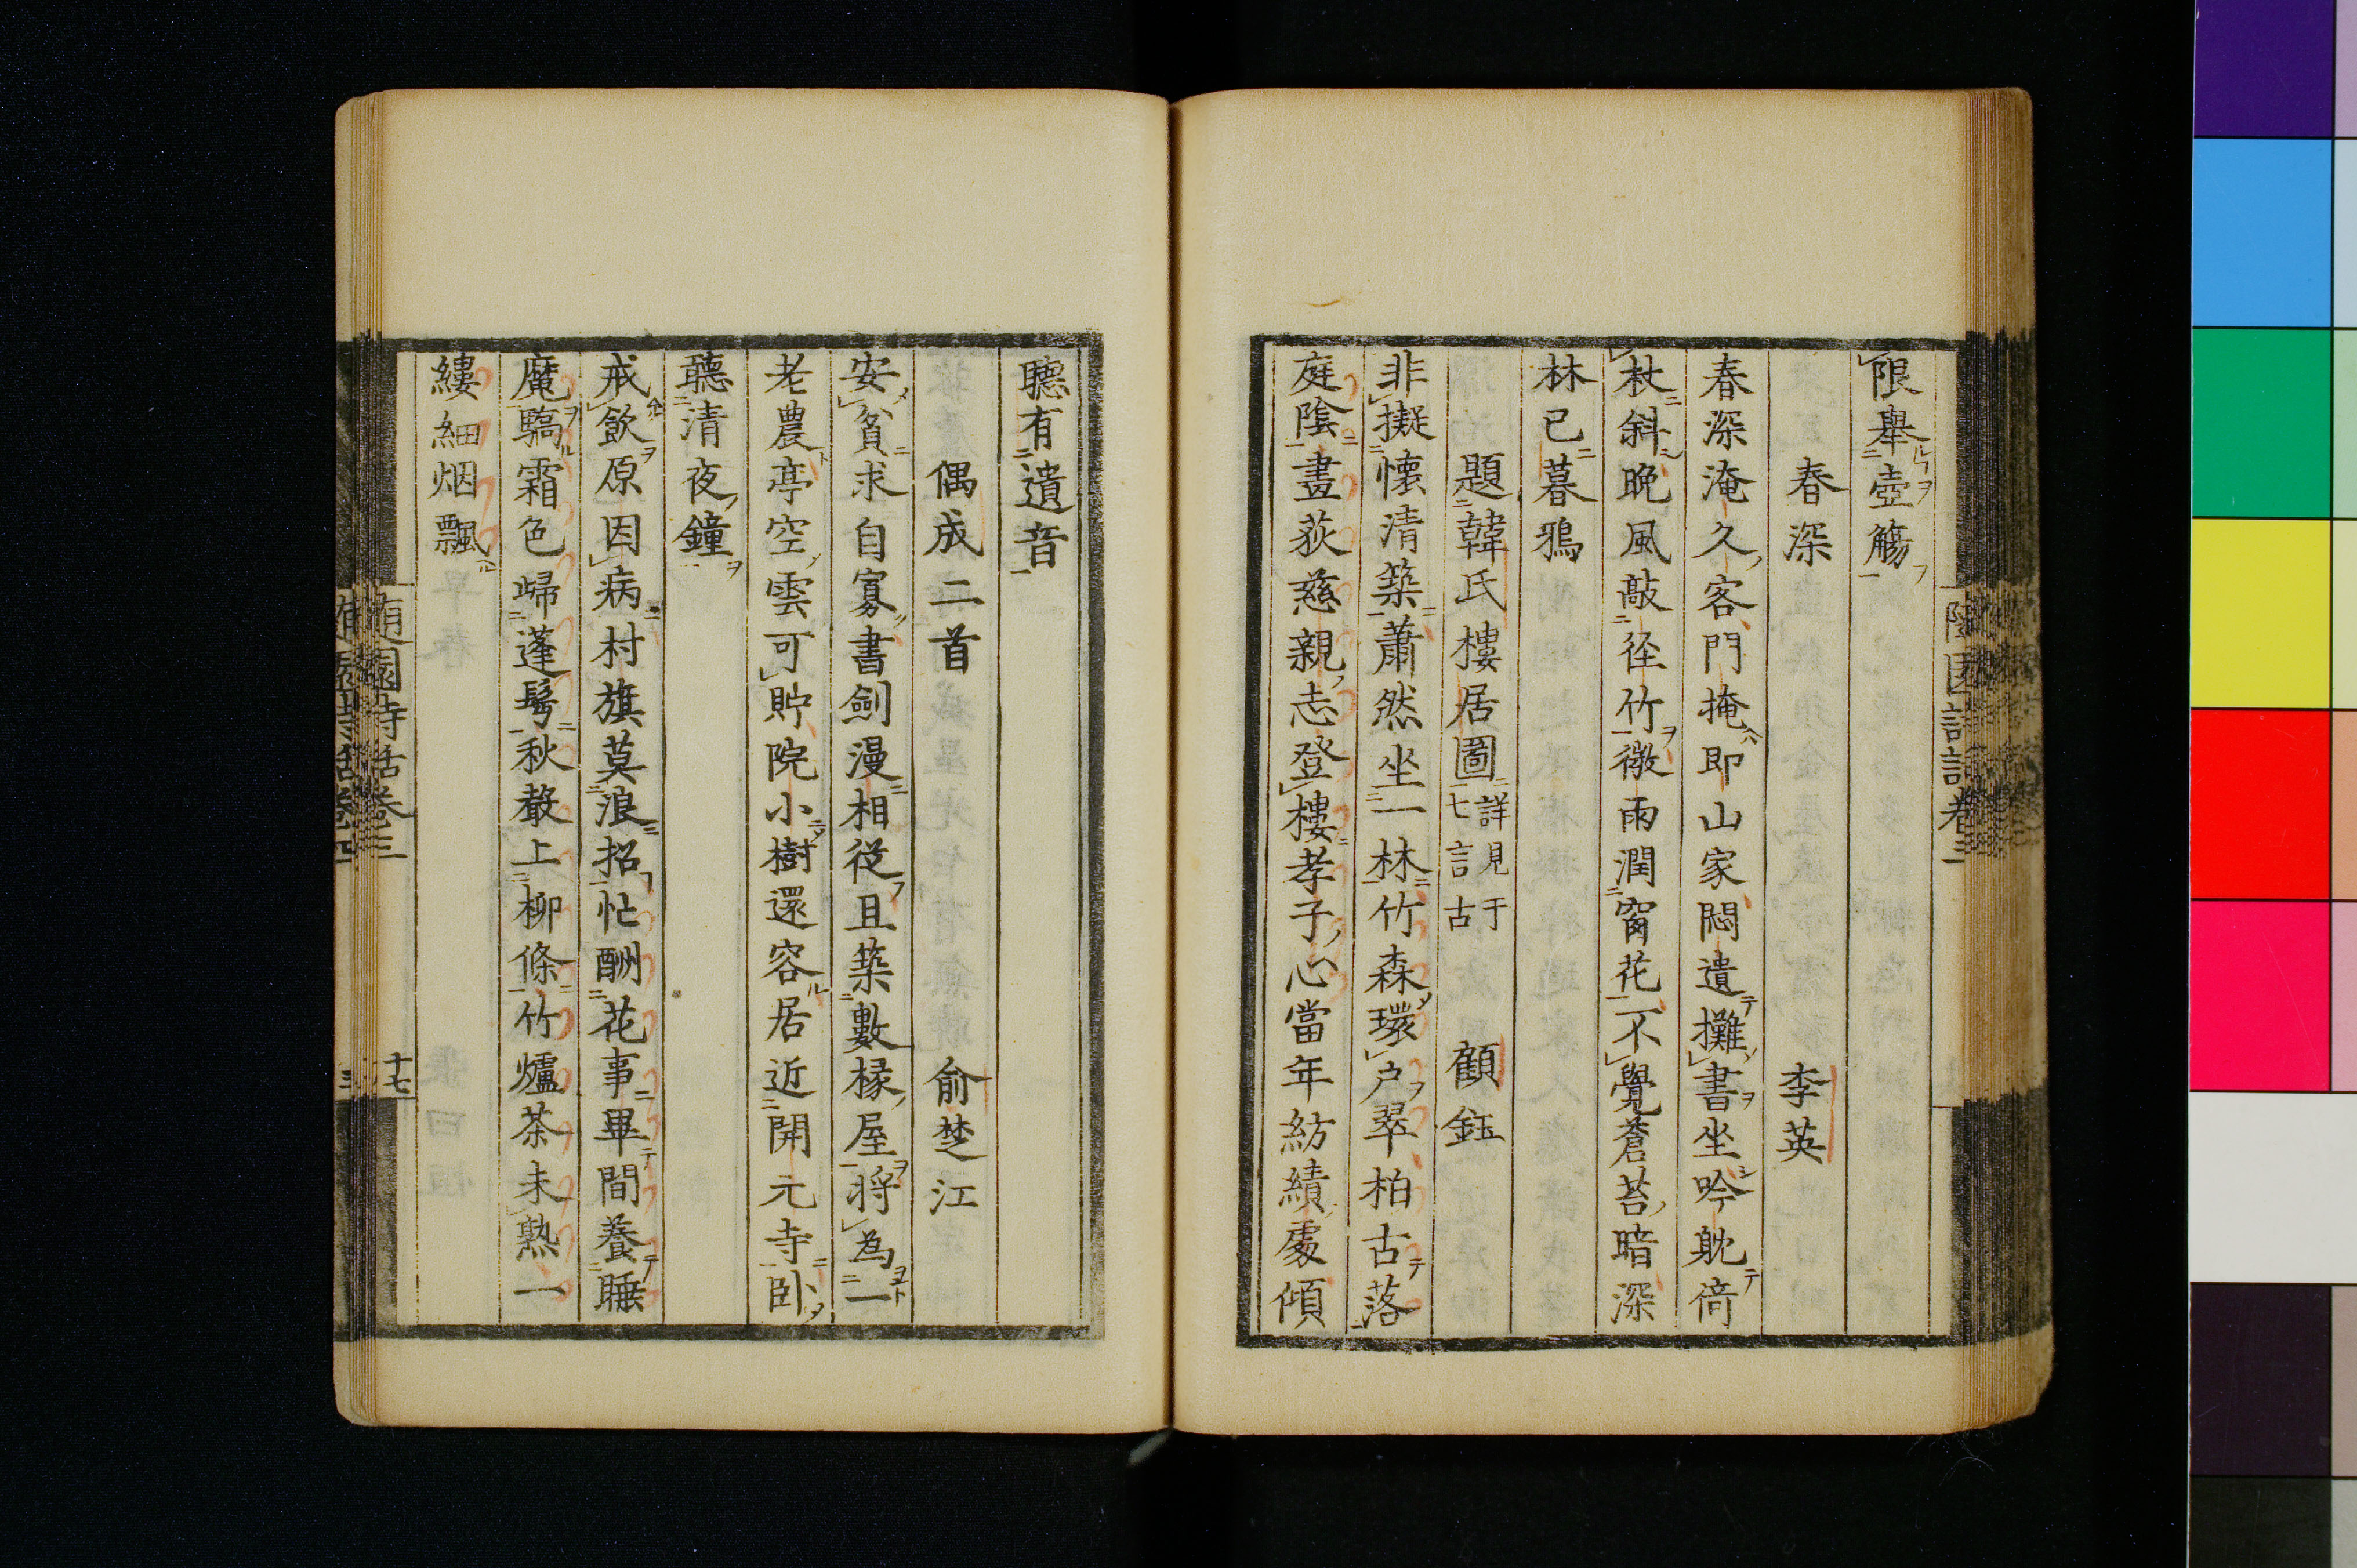 限舉壺觴
春深　李英
春深淹久客門掩即山家悶遣攤書坐吟躭倚
杖斜晚風敲径竹微雨潤窗花不覺蒼苔暗深
林已暮鴉
題韓氏樓居圖詳見于七言古　顧鈺
非擬懷清築蕭然坐一林竹森環户翠柏古落
庭陰畫荻慈親志登樓孝子心當年紡績處傾
聽有遺音
偶成二首　俞楚江
安貧求自寡書劍漫相從且築數椽屋将為一
老農亭空雲可貯院小樹還容居近開元寺卧
聽清夜鐘
戒飲原因病村旗莫浪招忙酬花事畢間養睡
魔驕霜色歸蓬髩秋聲上柳條竹爐茶未熟一
縷細烟飄
随園詩話卷三
十七